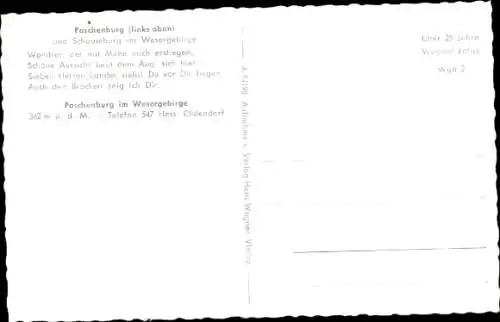 Paschenburg (links oben)
und Schaumburg im Wesergebirge
Wandrer, der mit Mühe mich erstiegen,
Schöne Aussicht beut dem Aug' sich hier;
Sieben Herren Landes siehst Du vor Dir liegen
Auch den Brocken zeig ich Dir.
Paschenburg im Wesergebirge
362 m ü. d. M. - Telefon 547 Hess. Oldendorf
Aufnahme u. Verlag Hans Wagner, Vlotho
Über 25 Jahre
Wagner Fotos